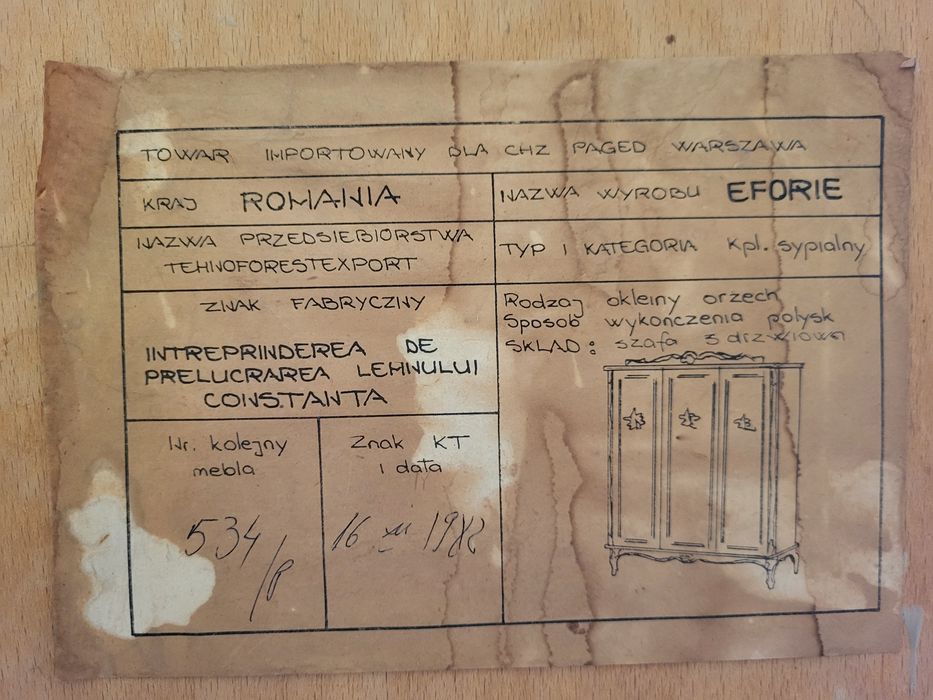 TOWAR IMPORTOWANY DLA CHZ PAGED WARSZAWA
KRAJ ROMANIA
NAZWA WYROBU EFORIE
NAZWA PRZEDSIEBIORSTWA
TEHNOFORESTEXPORT
TYP I KATEGORIA Kpl. sypialny
ZNAK FABRYCZNY
INTREPRINDEREA DE
PRELUCRAREA LEHNULUI
CONSTANTA
Rodzaj okleiny orzech
Sposob wykończenia połysk
SKLAD: szafa 3 drzwiowa
Nr. kolejny
mebla
534/
Znak KT
i data
16 XII